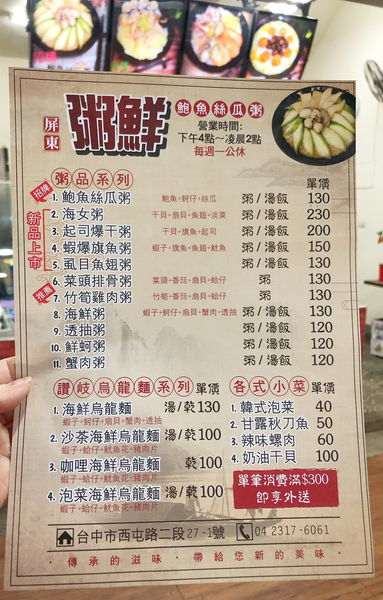 屏東
粥鮮
鮑魚絲瓜粥
營業時間:
下午4點~凌晨2點
每週一公休
粥品系列 單價
招牌 1. 鮑魚絲瓜粥 鮑魚+蚵仔+絲瓜 粥/湯飯 130
新品上市
2. 海女粥 干貝+扇貝+魚翅+淡菜 粥/湯飯 230
3. 起司爆干粥 干貝+旗魚+起司 粥/湯飯 200
4. 蝦爆旗魚粥 蝦子+旗魚+魚翅+魷魚 粥/湯飯 150
5. 虱目魚翅粥 粥/湯飯 130
6. 菜頭排骨粥 菜頭+香菇+扇貝+蛤仔 粥 130
推薦 7. 竹筍雞肉粥 竹筍+香菇+扇貝+蛤仔 粥 130
8. 海鮮粥 蝦子+蚵仔+扇貝+蟹肉+透抽 粥/湯飯 130
9. 透抽粥 粥/湯飯 120
10. 鮮蚵粥 粥/湯飯 120
11. 蟹肉粥 粥/湯飯 120
讚岐烏龍麵系列 單價
1. 海鮮烏龍麵 湯/乾 130
蝦子+蚵仔+扇貝+蟹肉+透抽
2. 沙茶海鮮烏龍麵 湯/乾 100
蝦子+蛤仔+魷魚花+豬肉片
3. 咖哩海鮮烏龍麵 乾 100
蝦子+蛤仔+魷魚花+豬肉片
4. 泡菜海鮮烏龍麵 湯/乾 100
蝦子+蛤仔+魷魚花+豬肉片
各式小菜 單價
1. 韓式泡菜 40
2. 甘露秋刀魚 50
3. 辣味螺肉 60
4. 奶油干貝 100
單筆消費滿$300
即享外送
台中市西屯路二段27-1號 04 2317-6061
·傳承的滋味·帶給您新的美味·